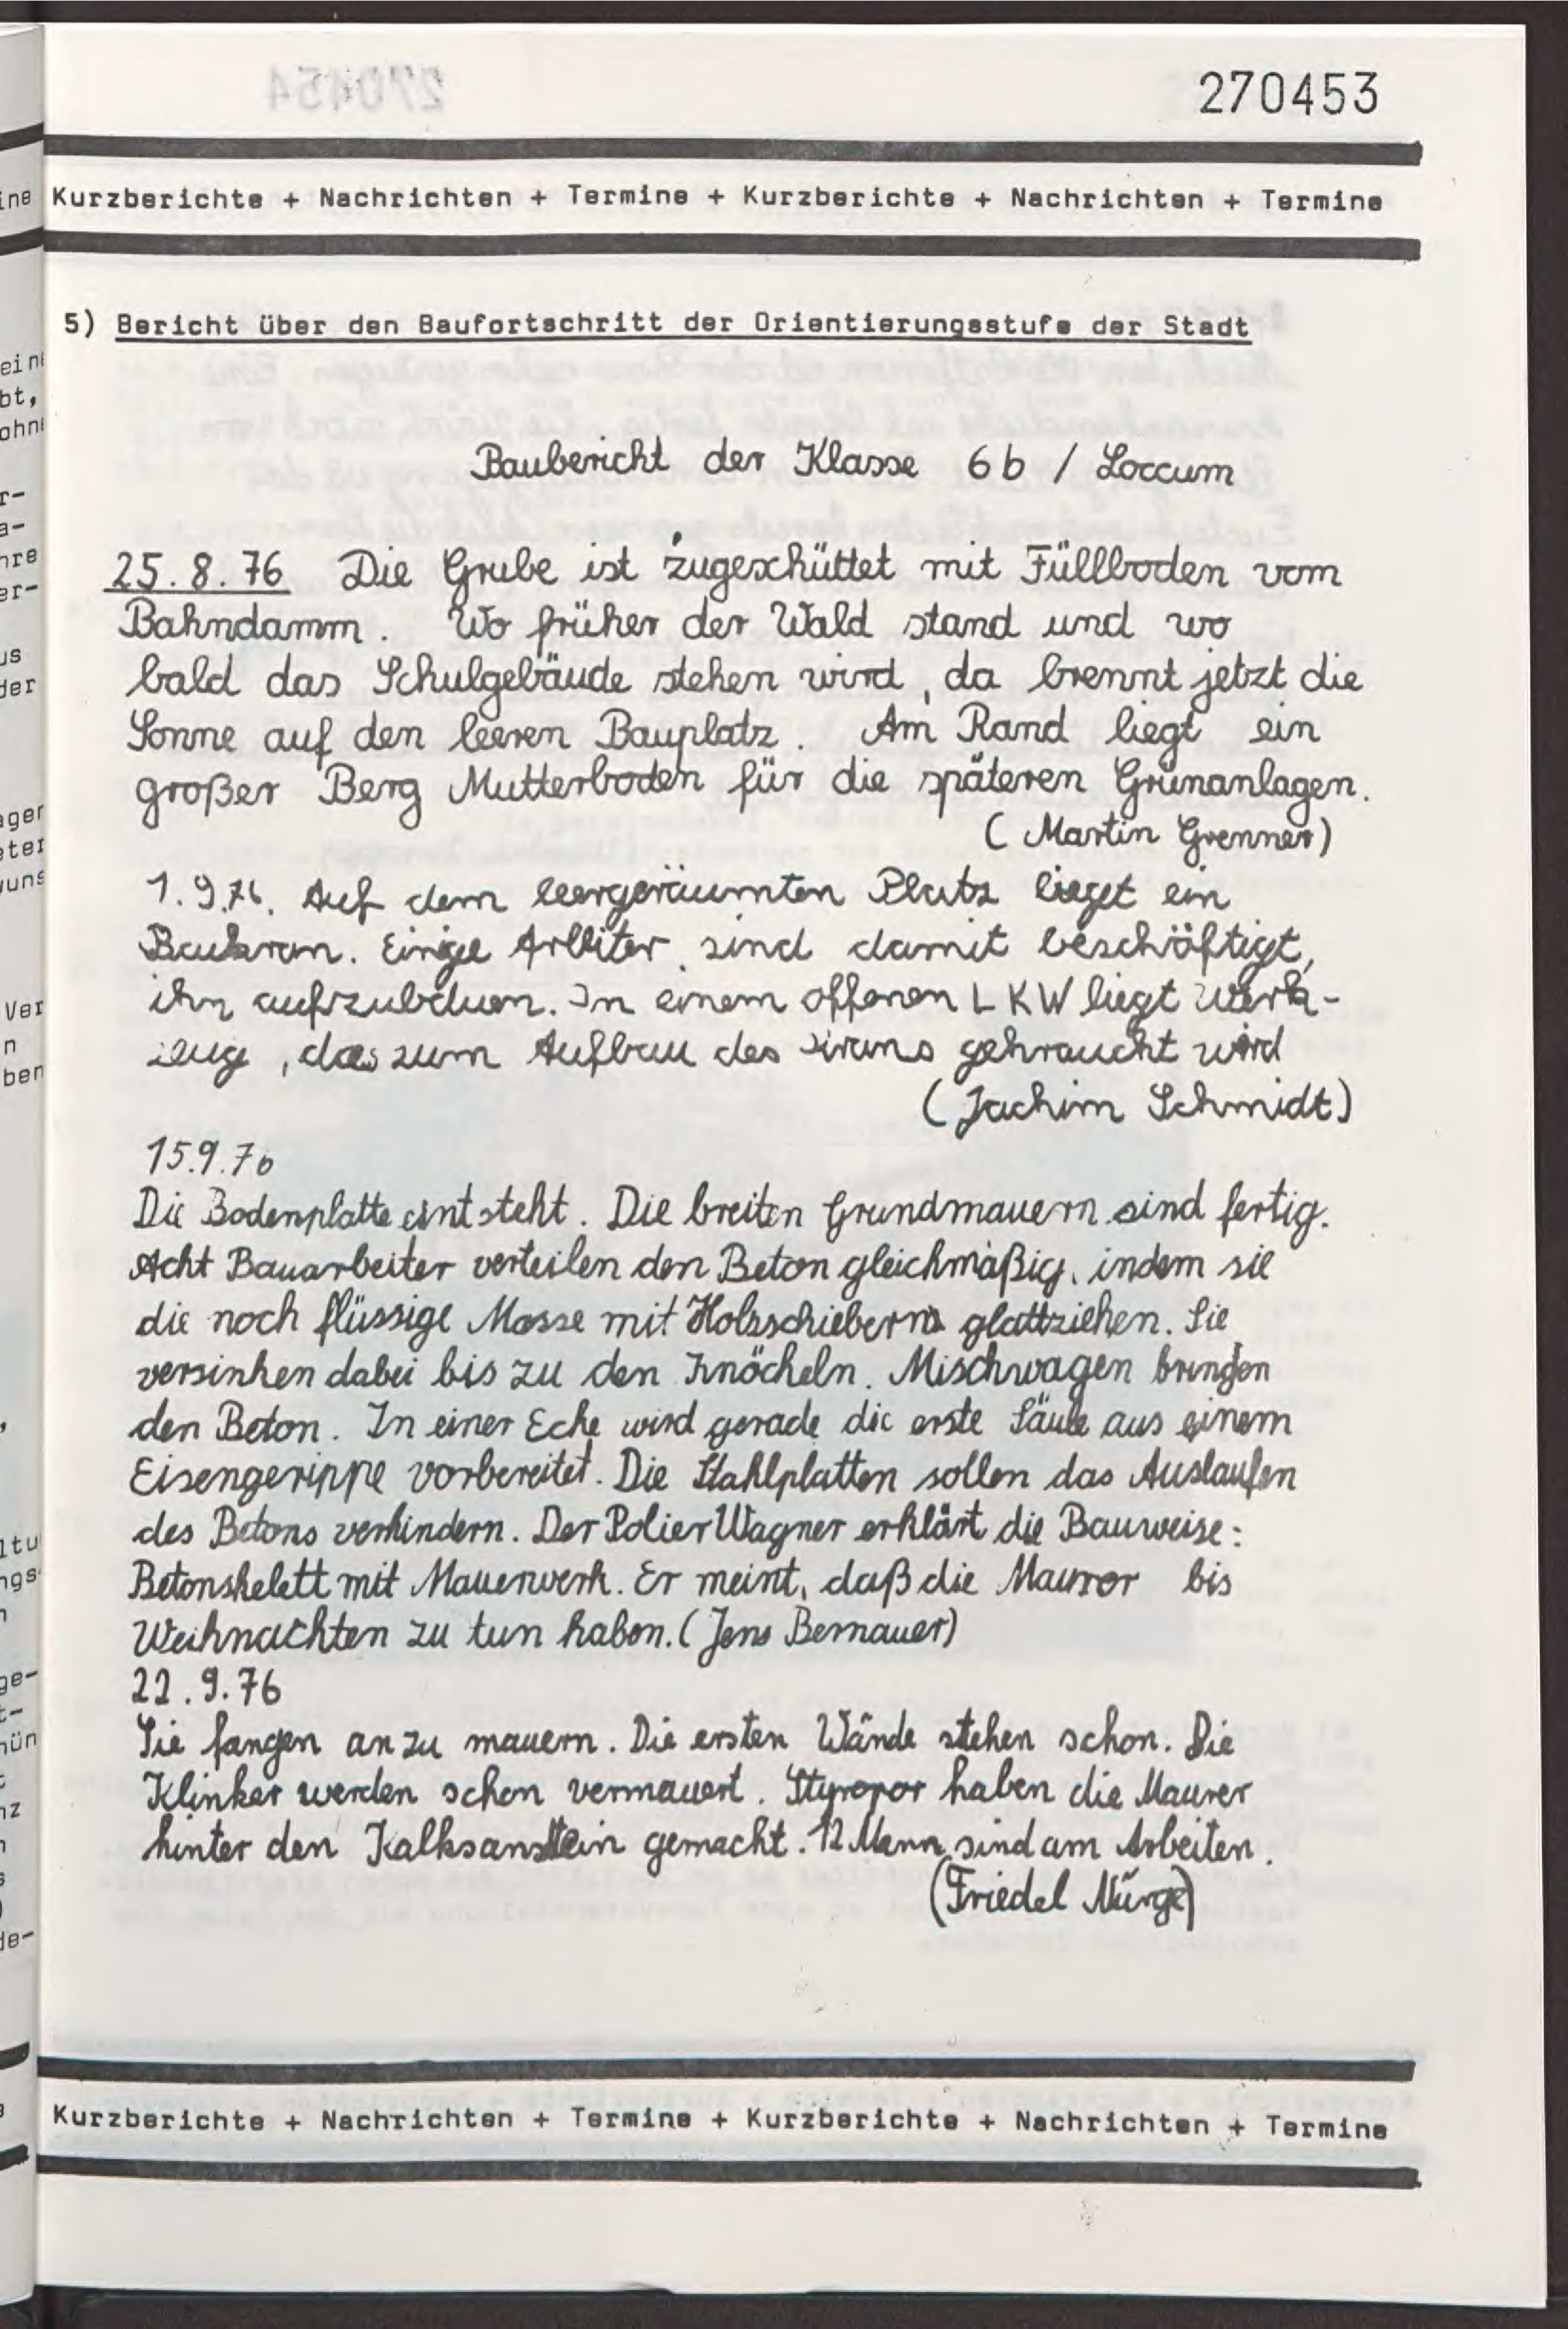 270453
Kurzberichte + Nachrichten + Termine + Kurzberichte + Nachrichten + Termine
5) Bericht über den Baufortschritt der Orientierungsstufe der Stadt
Baubericht der Klasse 6b / Loccum
25.8.76 Die Grube ist zugeschüttet mit Füllboden vom
Bahndamm. Wo früher der Wald stand und wo
bald das Schulgebäude stehen wird, da brennt jetzt die
Sonne auf den leeren Bauplatz. Am Rand liegt ein
großer Berg Mutterboden für die späteren Grünanlagen.
(Martin Grenner)
1.9.76. Auf dem leergeräumten Platz lieget ein
Baukran. Einige Arbeiter sind damit beschäftigt,
ihn aufzubauen. In einem offenen LKW liegt Werk-
zeug, das zum Aufbau des Krans gebraucht wird
(Jachim Schmidt)
15.9.76
Die Bodenplatte entsteht. Die breiten Grundmauern sind fertig.
Acht Bauarbeiter verteilen den Beton gleichmäßig, indem sie
die noch flüssige Masse mit Holzschiebern glattziehen. Sie
versinken dabei bis zu den Knöcheln. Mischwagen bringen
den Beton. In einer Ecke wird gerade die erste Säule aus einem
Eisengerippe vorbereitet. Die Stahlplatten sollen das Auslaufen
des Betons verhindern. Der Polier Wagner erklärt die Bauweise:
Betonskelett mit Mauerwerk. Er meint, daß die Maurer bis
Weihnachten zu tun haben. (Jens Bernauer)
22.9.76
Sie fangen an zu mauern. Die ersten Wände stehen schon. Die
Klinker werden schon vermauert. Styropor haben die Maurer
hinter den Kalksanstein gemacht. 12 Mann sind am Arbeiten.
(Friedel Nürge)
Kurzberichte + Nachrichten + Termine + Kurzberichte + Nachrichten + Termine